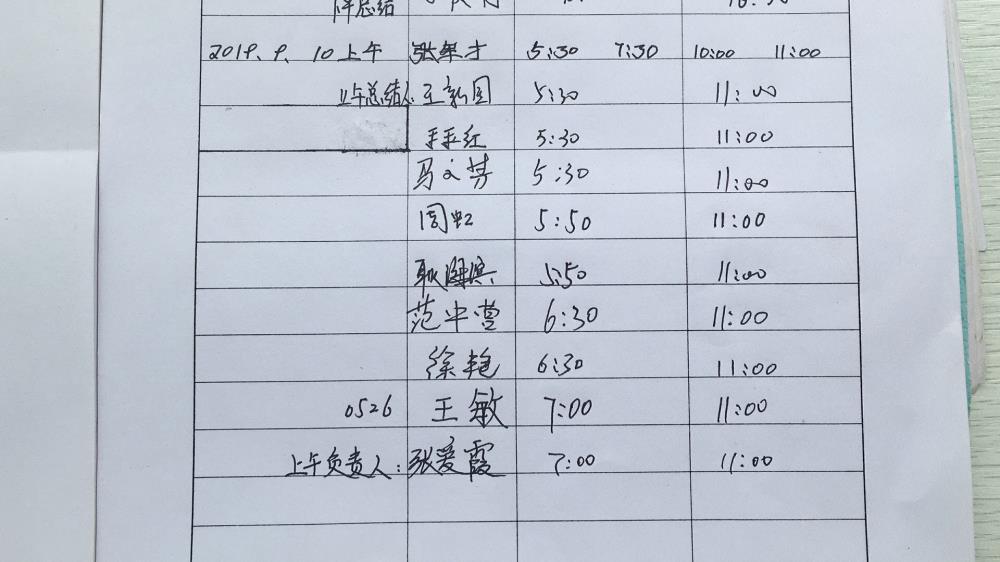 2019、9、10上午 张军才 5:30 7:30 10:00 11:00
上午总结人:王新国 5:30 11:00
5:30 11:00
马文芳 5:30 11:00
周虹 5:50 11:00
耿 5:50 11:00
范中营 6:30 11:00
徐艳 6:30 11:00
0526 王敏 7:00 11:00
上午负责人:张爱霞 7:00 11:00